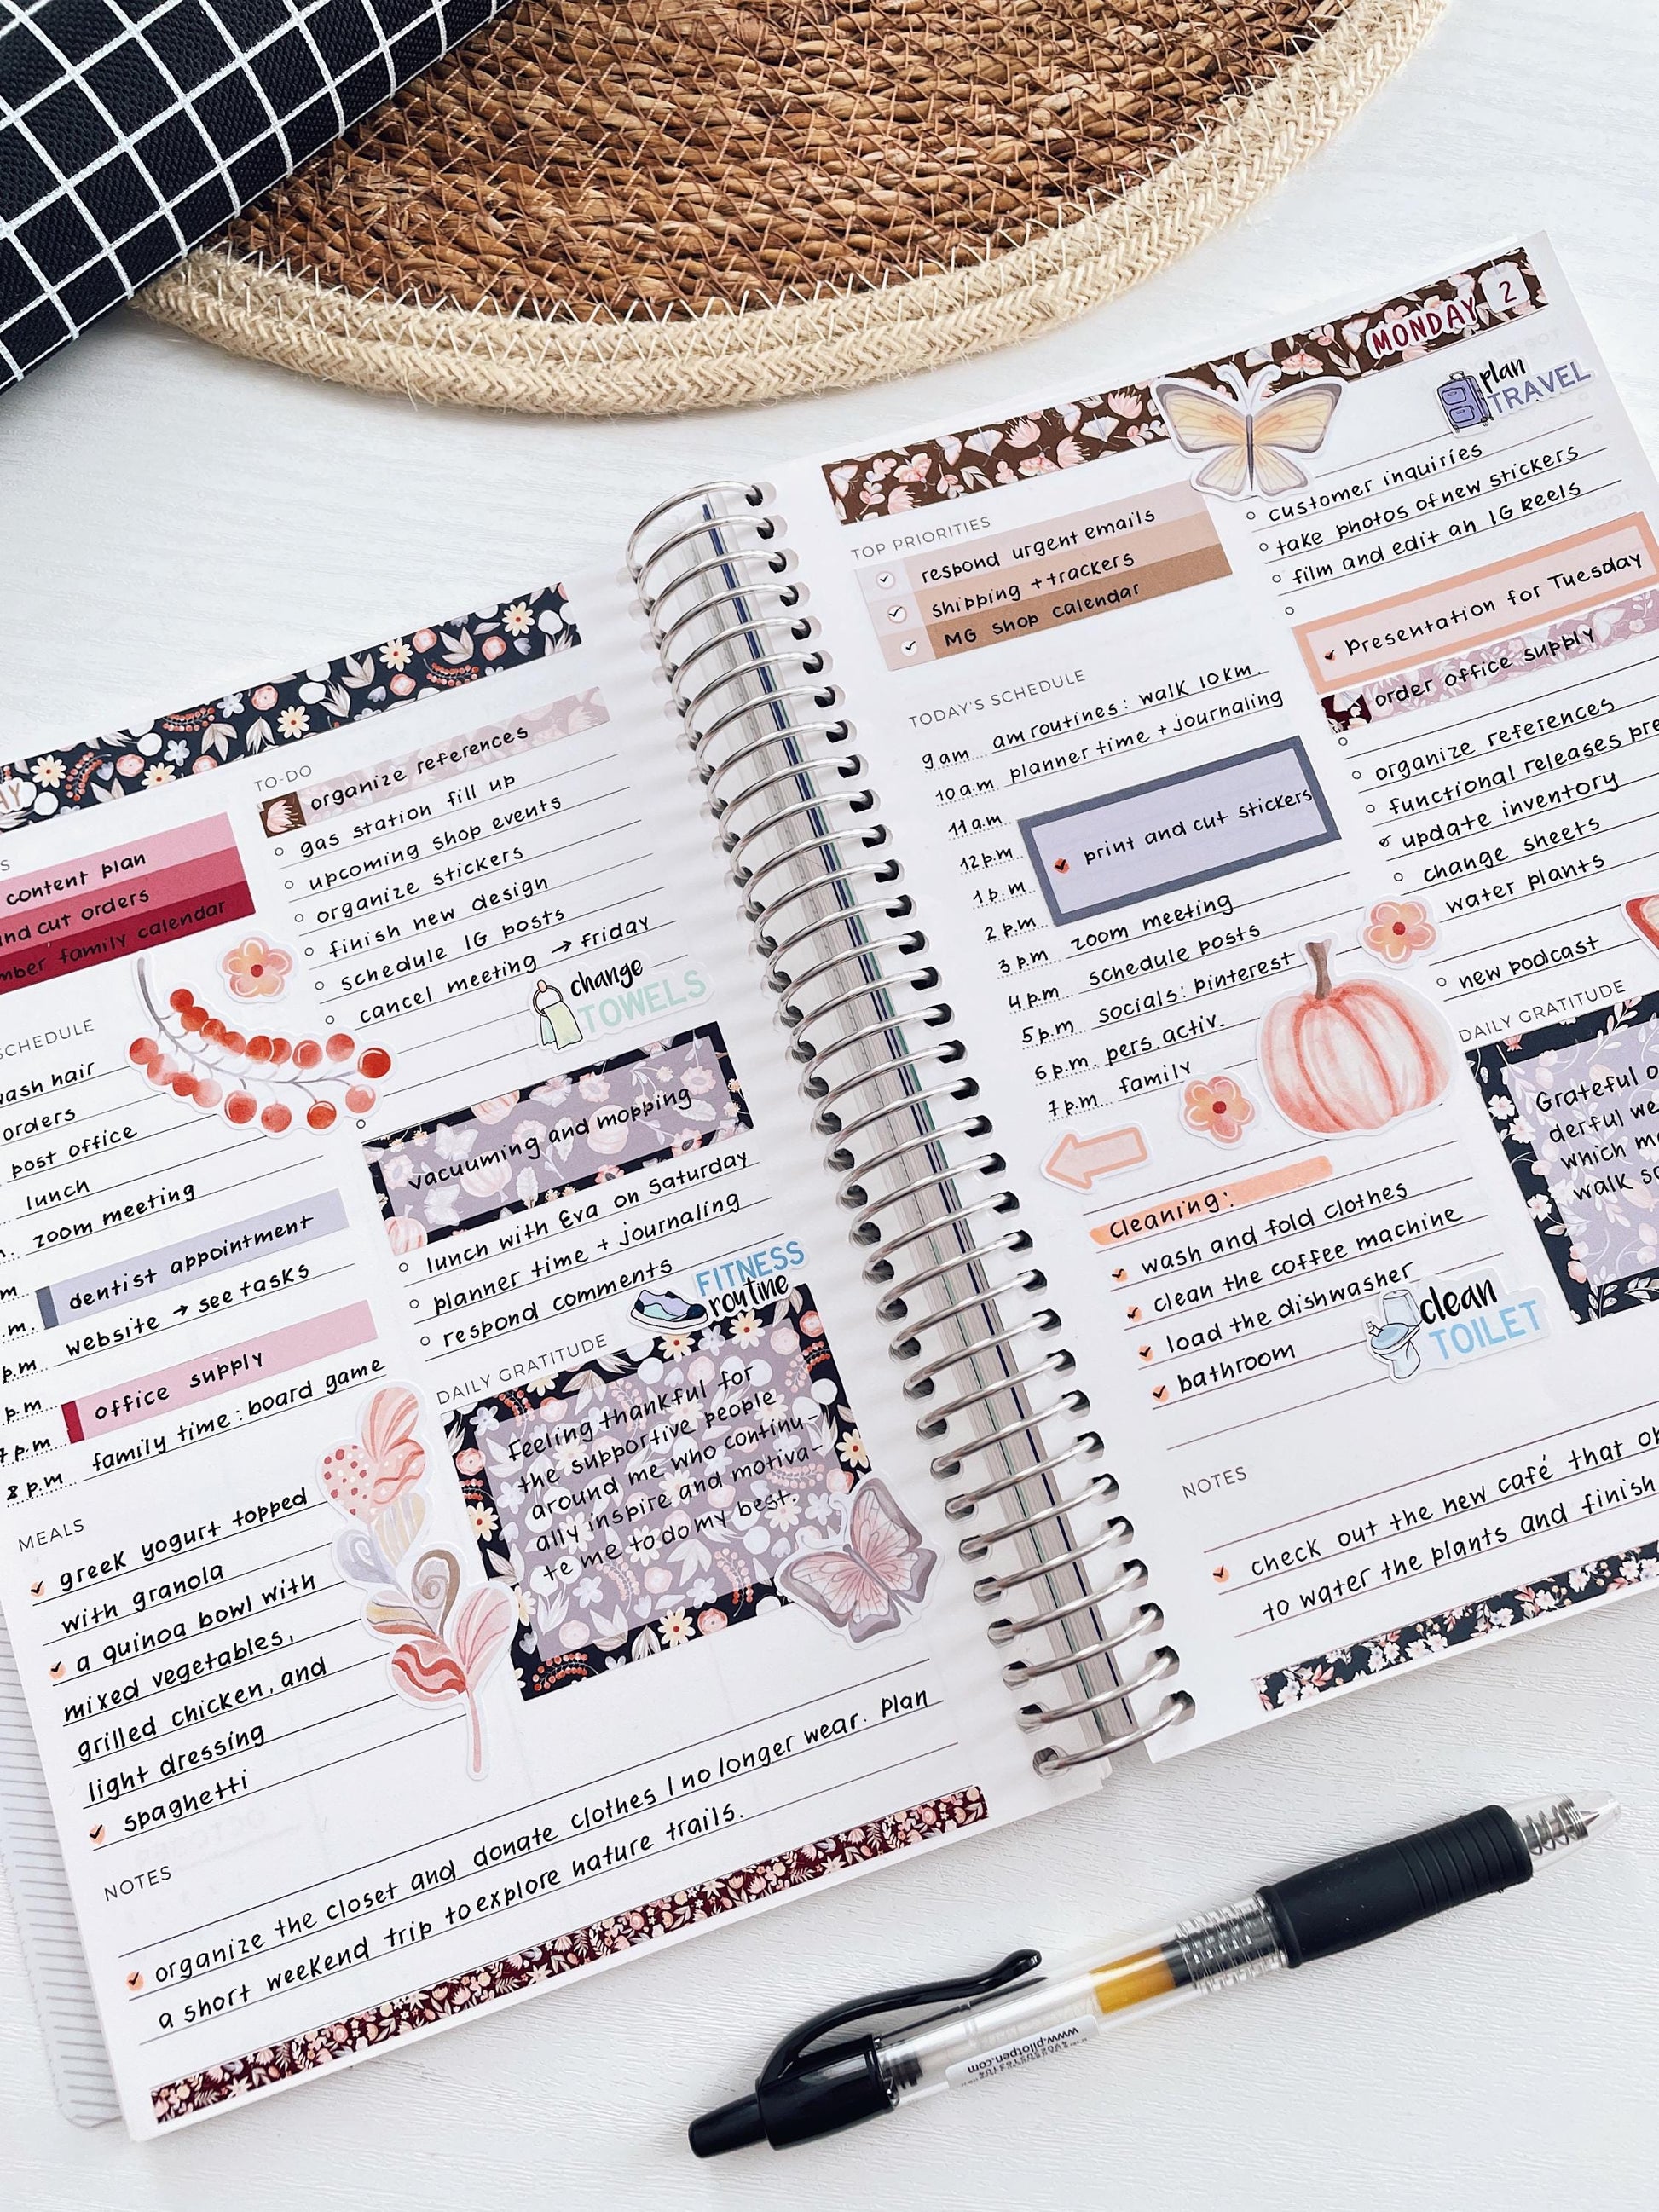 AY
TO-DO
organize references
gas station fill up
upcoming shop events
organize stickers
finish new design
schedule IG posts
cancel meeting → Friday
change
TOWELS
vacuuming and mopping
lunch with Eva on Saturday
planner time + journaling
respond comments
FITNESS
routine
content plan
cut orders
family calendar
SCHEDULE
hair
orders
post office
lunch
zoom meeting
dentist appointment
website → see tasks
p.m
office supply
p.m
family time: board game
8 p.m.
MEALS
greek yogurt topped
with granola
a quinoa bowl with
mixed vegetables,
grilled chicken, and
light dressing
spaghetti
DAILY GRATITUDE
Feeling thankful for
the supportive people
around me who continu-
ally inspire and motiva-
te me to do my best.
NOTES
organize the closet and donate clothes I no longer wear. Plan
a short weekend trip to explore nature trails.
MONDAY 2
plan
TRAVEL
TOP PRIORITIES
respond urgent emails
shipping + trackers
MG shop calendar
TODAY'S SCHEDULE
9 am am routines: walk 10 km.
10 a.m planner time + journaling
11 a.m.
12 p.m print and cut stickers
1 p.m
2 p.m. zoom meeting
3 p.m schedule posts
4 p.m socials: pinterest
5 p.m pers. activ.
6 p.m. family
7 p.m.
Cleaning:
wash and fold clothes
clean the coffee machine
load the dishwasher
bathroom
clean
TOILET
customer inquiries
take photos of new stickers
film and edit an IG Reels
Presentation for Tuesday
order office supply
organize references
functional releases
update inventory
change sheets
water plants
new podcast
DAILY GRATITUDE
Grateful
derful
which
walk
NOTES
check out the new café that
to water the plants and finish
www.pilotpen.com